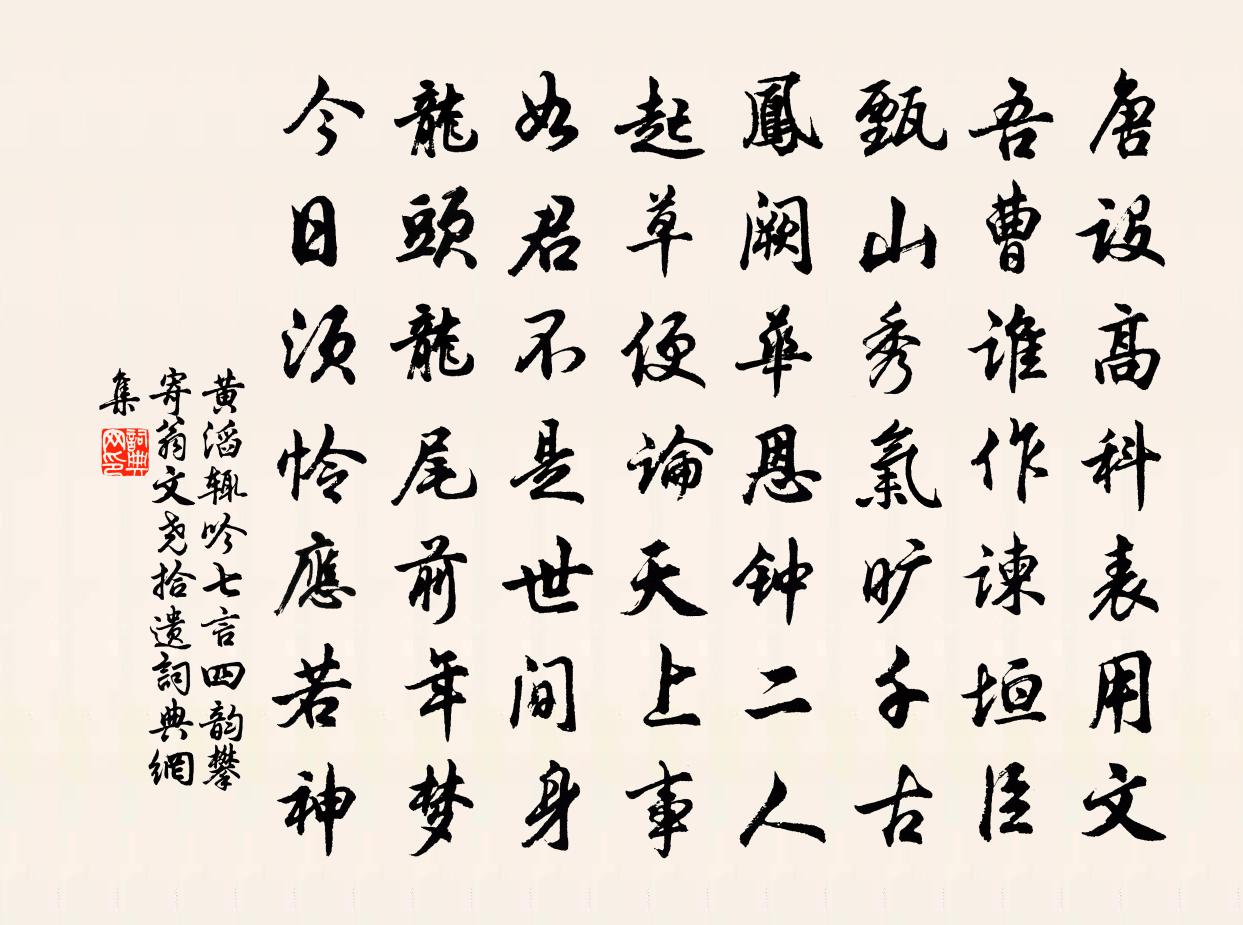 唐設高科表用文
吾曹誰作諫垣臣
甄山秀氣旷千古
鳳阙華恩钟二人
起草便論天上事
如君不是世间身
龍頭龍尾前年梦
今日须怜應若神
黄滔辄吟七言四韵攀
寄翁文尧拾遗詞典網
集
詞典网印